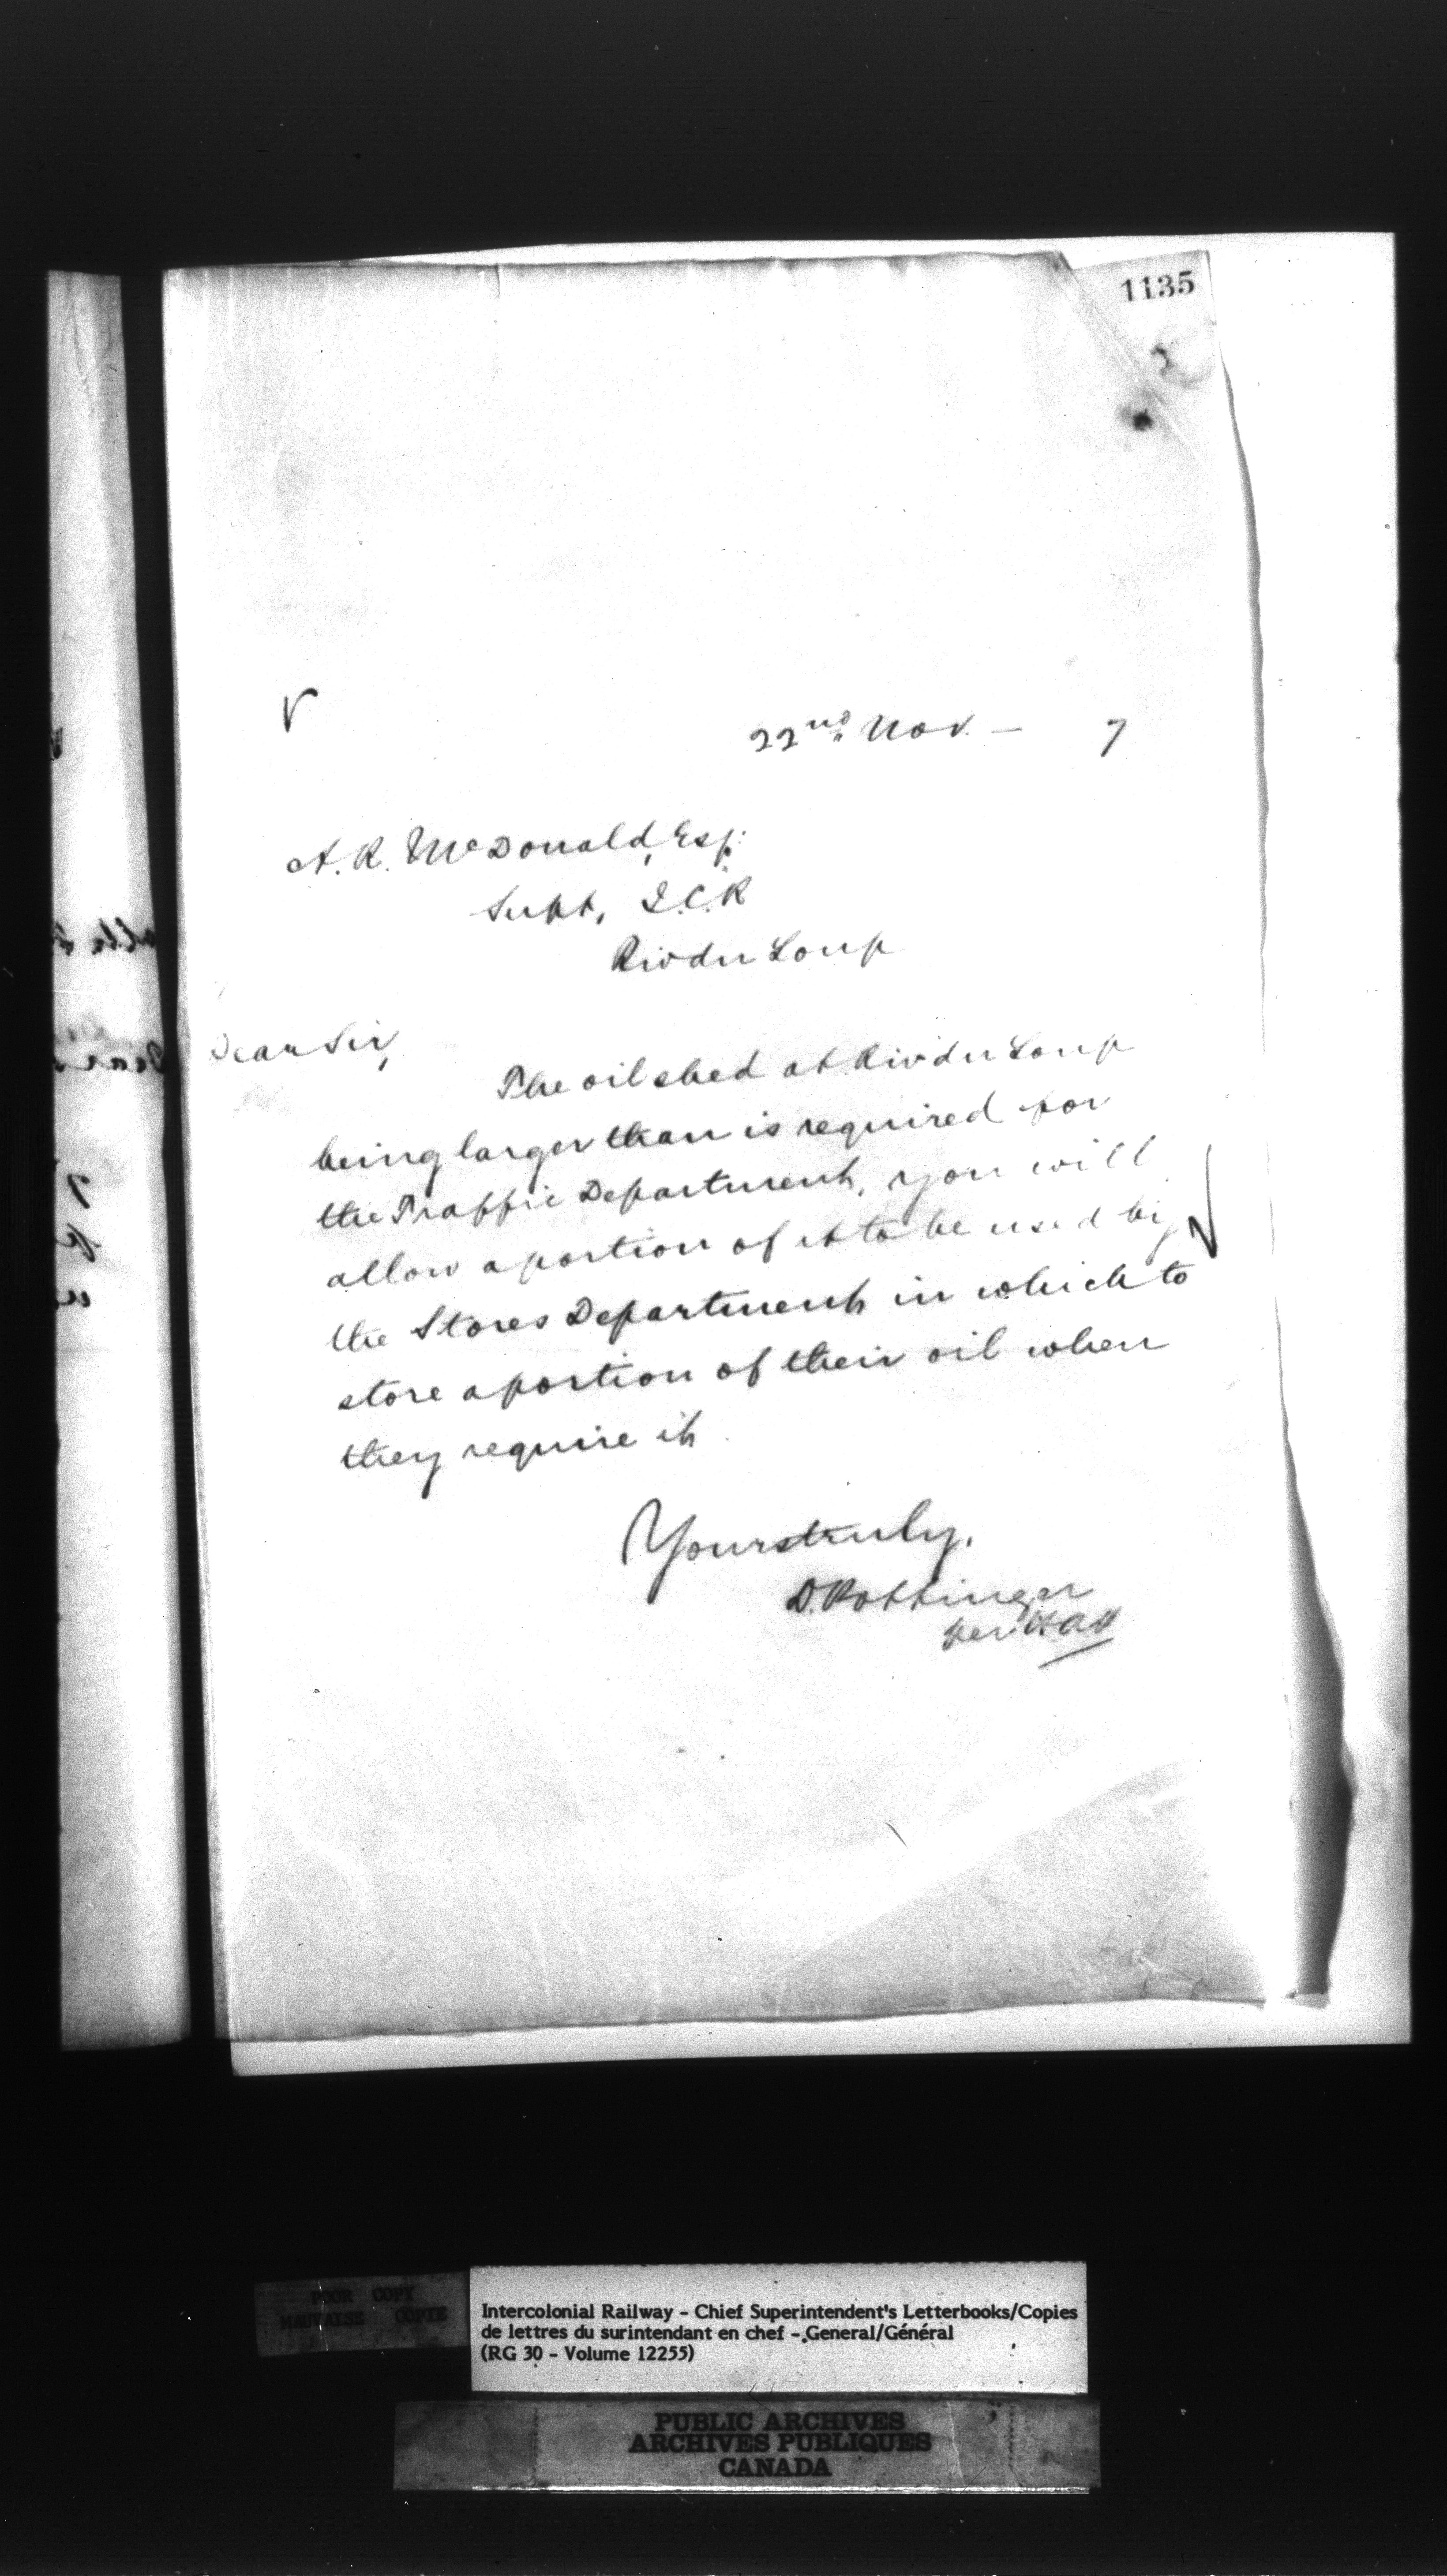 1135
22nd. Nov. — 7
A. R. McDonald, Esq.
Supt, I.C.R
Rivdu Loup
Dear Sir,
The oil shed at Rivdu Loup
being larger than is required for
the Traffic Department, you will
allow a portion of it to be used by
the Stores Department in which to
store a portion of their oil when
they require it.
Yours truly,
D. Pottinger
per
POOR COPY
MAUVAISE COPIE
Intercolonial Railway - Chief Superintendent's Letterbooks/Copies
de lettres du surintendant en chef - General/Général
(RG 30 - Volume 12255)
PUBLIC ARCHIVES
ARCHIVES PUBLIQUES
CANADA